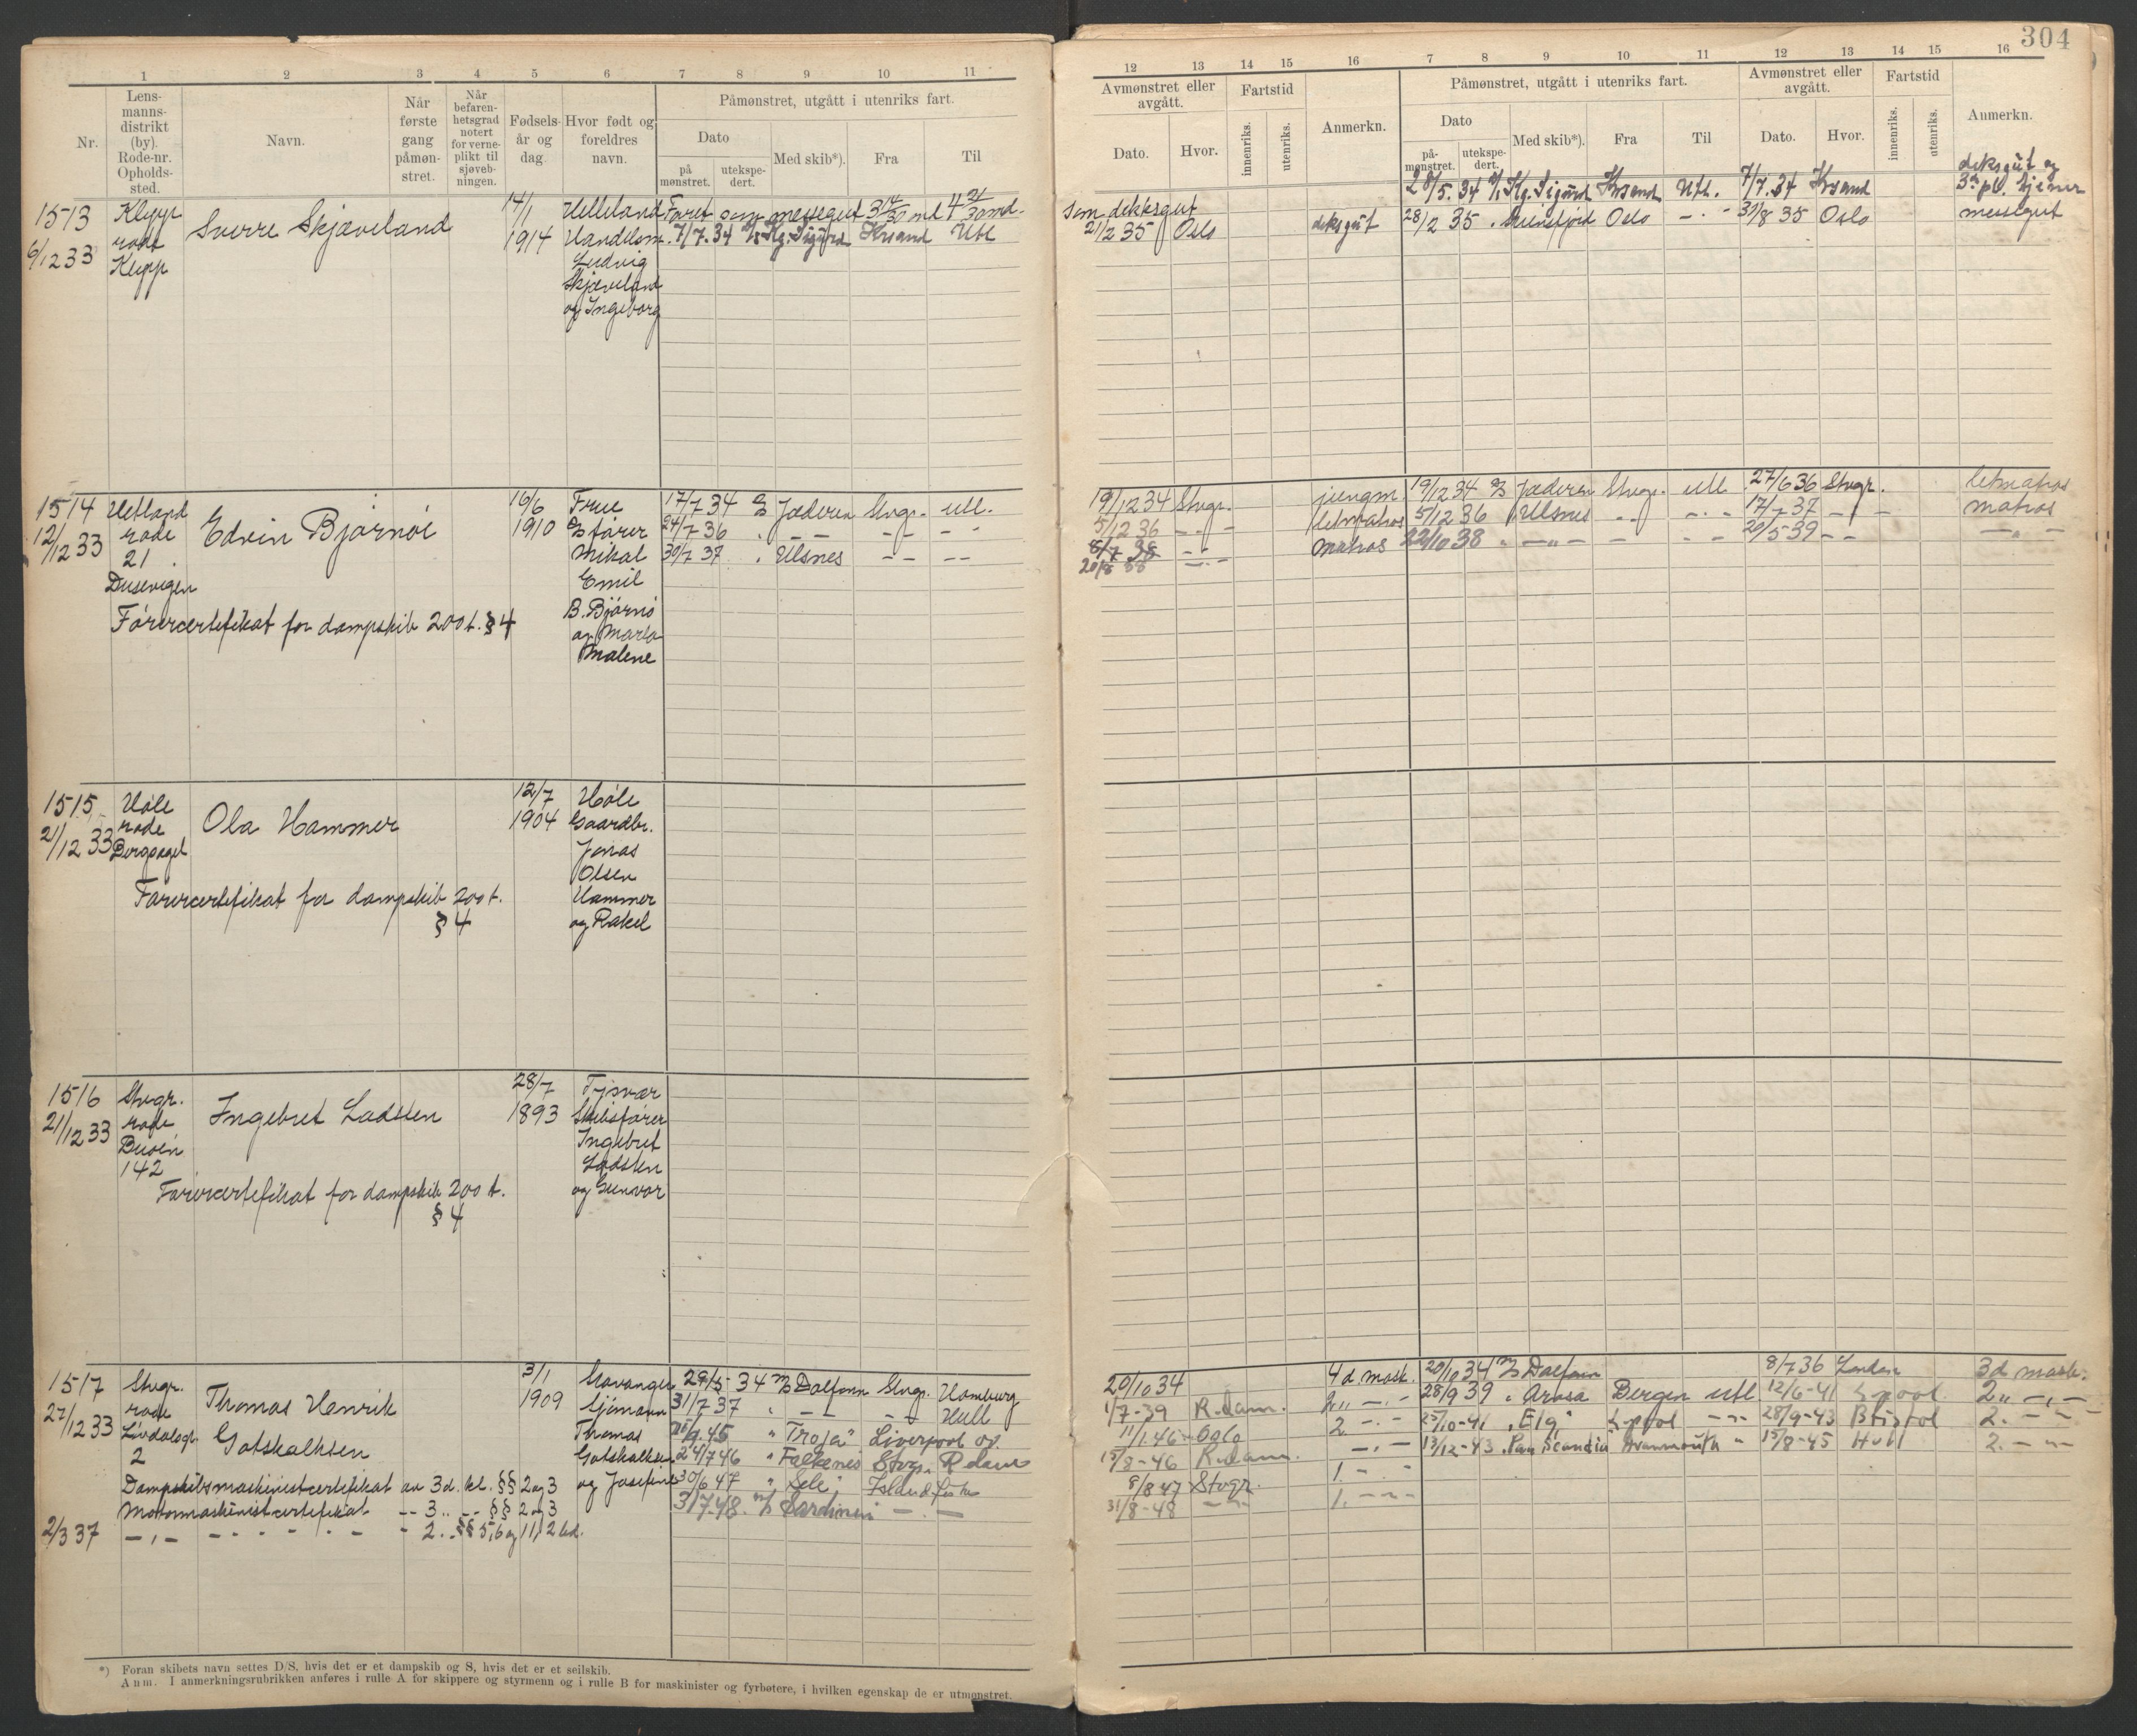 304
1 2 3 4 5 6 7 8 9 10 11
Nr.
Lens-
manns-
distrikt
(by).
Rode-nr.
Opholds-
sted.
Navn.
Når
første
gang
påmøn-
stret.
Når
befaren-
hetsgrad
notert
for verne-
plikt til
sjøveb-
ningen.
Fødsels-
år og
dag.
Hvor født og
foreldres
navn.
Påmønstret, utgått i utenriks fart.
Dato
på
mønstret.
utekspe-
dert.
Med skib*).
Fra
Til
12 13 14 15 16 7 8 9 10 11 12 13 14 15 16
Avmønstret eller
avgått.
Dato.
Hvor.
Fartstid
innenriks.
utenriks.
Anmerkn.
Påmønstret, utgått i utenriks fart.
Dato
på-
mønstret.
utekspe-
dert.
Med skib*).
Fra
Til
Avmønstret eller
avgått.
Dato.
Hvor.
Fartstid
innenriks.
utenriks.
Anmerkn.
1513
6/12 33
Klepp
rode
Klepp
Sverre Skjæveland
14/1
1914
Helleland
Handlsm.
Ludvig
Skjæveland
og Ingeborg
Faret som messegut 3 14/30 md 4 21/30 md.
7/7.34 Kg. Sigurd Krsand Utl
som dekksgut
21/2 35 Oslo deksgut
28/5.34 Kg. Sigurd Krsand Utl. 7/7.34 Krsand
deksgut og
28/2 35 Oslo - " - 31/8 35 Oslo messegut
1514
12/12 33
Hetland
rode
21
Dusevigen
Edvin Bjørnøi
16/6
1910
Mikal
Emil
B. Bjørnø
og Marta
Malene
Førercertifikat for dampskib 200 t. § 4
17/7 34 Jæderen Stvgr. utl.
24/7 36 " - - - - - -
30/7 37 " Ulsnes - - - -
19/12 34 Stvgr. jungm. 19/12 34 Jæderen Stvgr. utl 27/6 36 Stvgr. letmatros
5/12 36 - " - letmatros 5/12 36 Ulsnes - - - " - 17/7 37 - " - matros
8/7 38 - - matros 22/10 38 " - " - - - - 20/5 39 - - - " -
20/8 38 - " -
1515
21/12 33
Høle
rode
Bergsagel
Ola Hammer
12/7
1904
Høle
Gaardbr.
Jonas
Olsen
Hammer
og Rakel
Førercertifikat for dampskib 200 t.
§ 4
1516
21/12 33
Stvgr.
rode
Buøen
142
Ingebret Ladsten
28/7
1893
Tysvær
Skibsfører
Ingebret
Ladsten
og Gunvor
Førercertifikat for dampskib 200 t.
§ 4
1517
27/12 33
Stvgr.
rode
Livdalsgt.
2
Thomas Henrik
Gotskalksen
3/1
1909
Stavanger
Sjømann
Thomas
Gotskalksen
og Josefine
Dampskibsmaskinistcertifikat av 3d. kl. §§ 2 og 3
Motormaskinistcertifikat - - 3 " - - §§ 2 og 3
2/3 37 - " - - - - - - - - 2 " - §§ 5, 6 og 11, 2 led.
29/5 34 M/S Dalfonn Stvgr. Hamburg
31/7 37 " - - - - Hull
45 " "Troja" Liverpool
24/7 46 " Falkenes Stvgr. R.dam
30/6 47 " Sele Island
31/7 48. Sardinen - " -
20/10 34 4d mask. 20/10 34 M/S Dalfonn 8/7 36 London 3d mask.
1/7-39 R.dam. 2 " - " - 28/9 39 " Arosa Bergen utl 12/6-41 L-pool 2 " - " -
11/1 46 Oslo 2. - " - 25/10-41 "Elg" L-pool - " - 28/9-43 Bristol 2. - " -
15/8-46 R.dam. - " - 13/12-43 "Pan Scandia" Avonmouth " 15/8-45 Hull 2. - " -
8/8 47 Stvgr. 1. - " -
31/8-48 - " - 1. - " -
*) Foran skibets navn settes D/S, hvis det er et dampskib og S, hvis det er et seilskib.
Anm. I anmerkningsrubrikken anføres i rulle A for skippere og styrmenn og i rulle B for maskinister og fyrbøtere, i hvilken egenskap de er utmønstret.